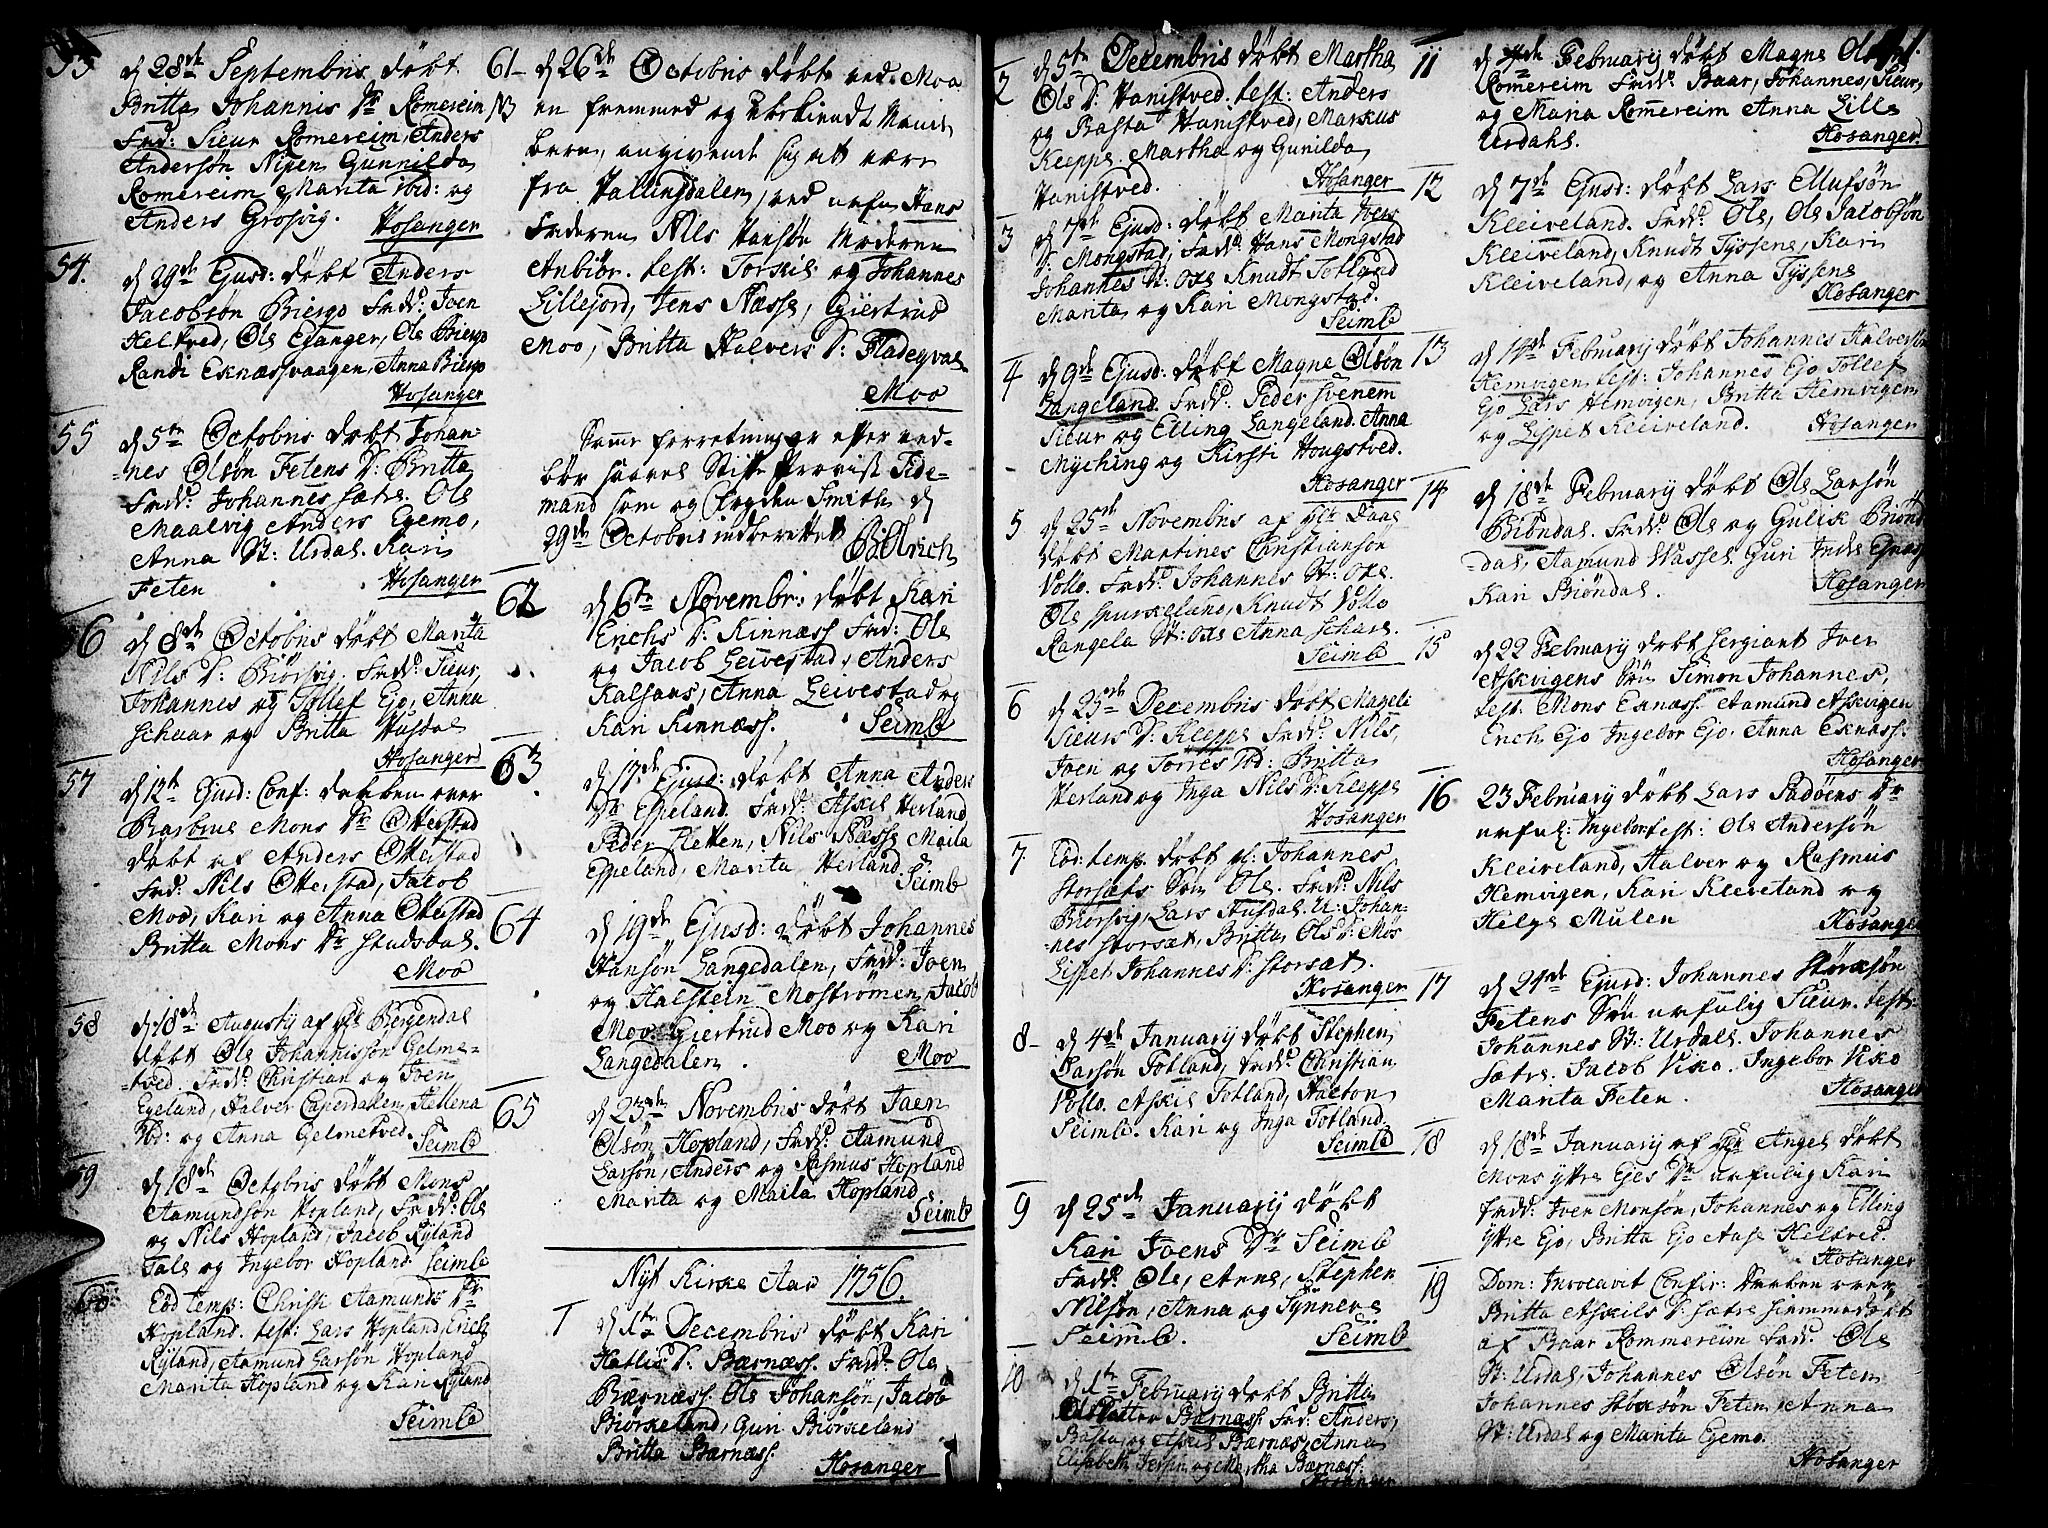 53
d 28de Septembris døbt
Britta Johannis Dr Romereim
Fad: Sieur Romereim Anders
Andersøn Nipen Gunnilda
Romereim Marita ibid: og
Anders Grøsvig. Hosanger
54.
d 29de Ejusd: døbt Anders
Jacobsøn Biergo Fadd: Joen
Heltved, Ole Eganger, Ole Biergo
Randi Exnæssvaagen, Anna Biergo
Hosanger
55
d 5te Octobris døbt Johan-
-nes Olsøn Fetens D: Britta
Fadd: Johannes Sætre. Ole
Maalvig Anders Egemo,
Anna St: Urdal. Kari
Feten Hosanger
56
d 8de Octobris døbt Marita
Nils D: Biørsvig. Fadd: Sieur,
Johannes og Tollef Ejo, Anna
Schaar og Britta Husdal
Hosanger
57
d 12te Ejusd: Conf: daaben over
Barbroe Mons Dr Otterstad
døbt af Anders Otterstad
Fad: Nils Otterstad, Jacob
Moo, Kari og Anna Otterstad
Britta Mons Dr Studsdal.
Moo
58
d 18de Augustij af Hr Bergendal
døbt Ole Johannissøn Gelme-
-tved. Fadd: Christian og Joen
Egeland, Halver Caperdalen, Hellena
Ibd: og Anna Gelmetved. Seimb
59
d 18de Octobris døbt Mons
Aamundsøn Hopland, Fadd: Ole
og Nils Hopland, Jacob Ryland
Tale og Ingebor Hopland. Seimb
60
Eod temp: Christi Aamunds Dr
Hopland. test: Lars Hopland, Erich
Ryland, Aamund Larsøn Hopland
Marita Hopland og Kari Ryland
Seimb
61 d 26de Octobris døbt ved Moo
NB en fremmed og ubekiendt Mands
barn, angivende sig at være
fra Hallingdalen, ved nafn Hans
Faderen Nils Hansøn Moderen
Anbiør. test: Torskil og Johannes
Lillejord, Jens Næsse, Giertrud
Moo, Britta Halvers D: Fladeqval
Moo
Samme forretning er efter ved-
bør hr Stifts Provist Tide-
mand som og Fogden Smith d
29de Octobris indberettet
62
d 6te Novembr: døbt Kari
Erichs D: Kinnæss Fad: Ole
og Jacob Leivestad, Anders
Kalsaas, Anna Leivestad og
Kari Kinnæss. Seimb
63
d 17de Ejusd: døbt Anna Anders
Dr Espeland. Fadd: Askil Herland
Peder Fletten, Nils Næsse Maila
Espeland, Marita Herland. Seimb
64
d 19de Ejusd: døbt Johannes
Hansøn Langedalen, Fadd: Joen
og Halstein Mostrømen, Jacob
Moo. Giertrud Moo og Kari
Langedalen. Moo
65
d 23de Novembris døbt Joen
Olsøn Hopland, Fadd: Aamund
Larsøn, Anders og Rasmus Hopland
Marita og Maila Hopland
Seimb
Nyt Kirke Aar 1756.
1 d 1te Decembris døbt Kari
Hallis D: Bærnæss. Fadd: Ole
Bærnæss. Ole Johansøn, Jacob
Biørkeland, Guri Biørkeland
Britta Bærnæss. Hosanger
2
d 5te Decembris døbt Martha
Ols D: Hanistved. test: Anders
og Basta Hanistved, Markus
Keeppe. Martha og Gunilda
Hanistved. Hosanger
3
d 7de Ejusd: døbt Marita Ivers
D: Mongstad, Fadd: Hans Mongstad
Johannes St: Oxe Knudt Totland
Marita og Kari Mongstad.
Seimb
4 d 9de Ejusd: døbt Magne Olsøn
Langeland. Fadd: Peder Svenem
Sieur og Elling Langeland. Anna
Myching og Kirsti Hougstved.
Hosanger
5. d 25de Novembris af Hr Daae
døbt Martines Christiansøn
Vollo. Fadd: Johannes St: Oxe.
Ole Spurkeland, Knudt Vollo
Rangela St: Oxe Anna Schare.
Seimb
6 d 25de Decembris døbt Mageli
Sieurs D: Kleppe Fadd: Nils,
Joen og Torres Ibd: Britta
Herland og Inga Nils D: Kleppe
Hosanger
7. Eod: temp. døbt Johannes
Storsæts Søn Ole. Fadd: Nils
Biørsvig, Lars Husdal. U: Johan-
-nes Storsæt, Britta Ols D: Mos
Lispet Johannes D: Storsæt.
Hosanger
8 d 4de Januarij døbt Stephen
Larsøn Totland, Fadd: Christian
Vollo. Askil Totland, Hacton
Seimb. Kari og Inga Totland.
Seimb
9 d 25de Januarij døbt
Kari Joens Dr Seimb
Fadd: Ole, Arne, Stephen
Nilsøn, Anna og Synneve
Seimb. Seimb
10 d 1te Februarij døbt Britta
Bærnæss Fad: Anders,
Basta og Askil Bærnæs, Anna
Elisabeth og Martha Bærnæss.
Hosanger
11
d 4de Februarij døbt Magne Ols
Romereim Fadd: Baar, Johannes, Sieur,
og Maria Romereim Anna Lille
Urdahl. Hosanger
12 d 7de Ejusd: døbt Lars Ellufsøn
Kleiveland. Fadd: Ole, Ole Jacobsøn
Kleiveland, Knudt Tyssene, Kari
Kleiveland, og Anna Tyssene
Hosanger
13 d 14de Februarij døbt Johannes Halversøn
Hemvigen, test: Johannes Ejo Tollef
Ejo Lars Hemvigen, Britta Hemvigen
og Lispet Kleiveland. Hosanger
14 d 18de Februarij døbt Ole Larsøn
Biøndal. Fadd: Ole og Gulik Biøn-
-dal, Aamund Wassel. Guri Indre
Kari Biøndal. Hosanger
15 d 22 Februarij døbt Sergiant Iver
Askvigens Søn Simon Johannes,
test. Mons Exnæss. Aamund Askvigen
Erich Ejo Ingebor Ejo. Anna Exnæss.
Hosanger
16 23 Februarij døbt Lars Padøens Dr
navnl: Ingebor test: Ole Andersøn
Kleiveland, Halver og Rasmus
Hemvigen, Kari Kleiveland og
Helge Mulen Hosanger
17 d 24de Ejusd: Johannes Størcksøn
Fetens Søn nafnlig Sieur. test:
Johannes St: Urdal. Johannes
Sætre. Jacob Viko. Ingebor Viko
Marita Feten. Hosanger
18 d 18de Januarij af Hr Angel døbt
Mons ytre Ejes Dr nafnlig Kari
Fadd: Iver Monsøn, Johannes og Elling
Ytre Ejo, Britta Ejo Aase Heltved.
Hosanger
19 Dom: Invocavit Confir: Daaben over
Britta Askils D: Sætre hiemmedøbt
af Baar Rommereim Fad: Ole
St: Urdal Johannes Olsøn Feten
Johannes Storksøn Feten Anna
St: Urdal og Marita Egemo.
Hosanger